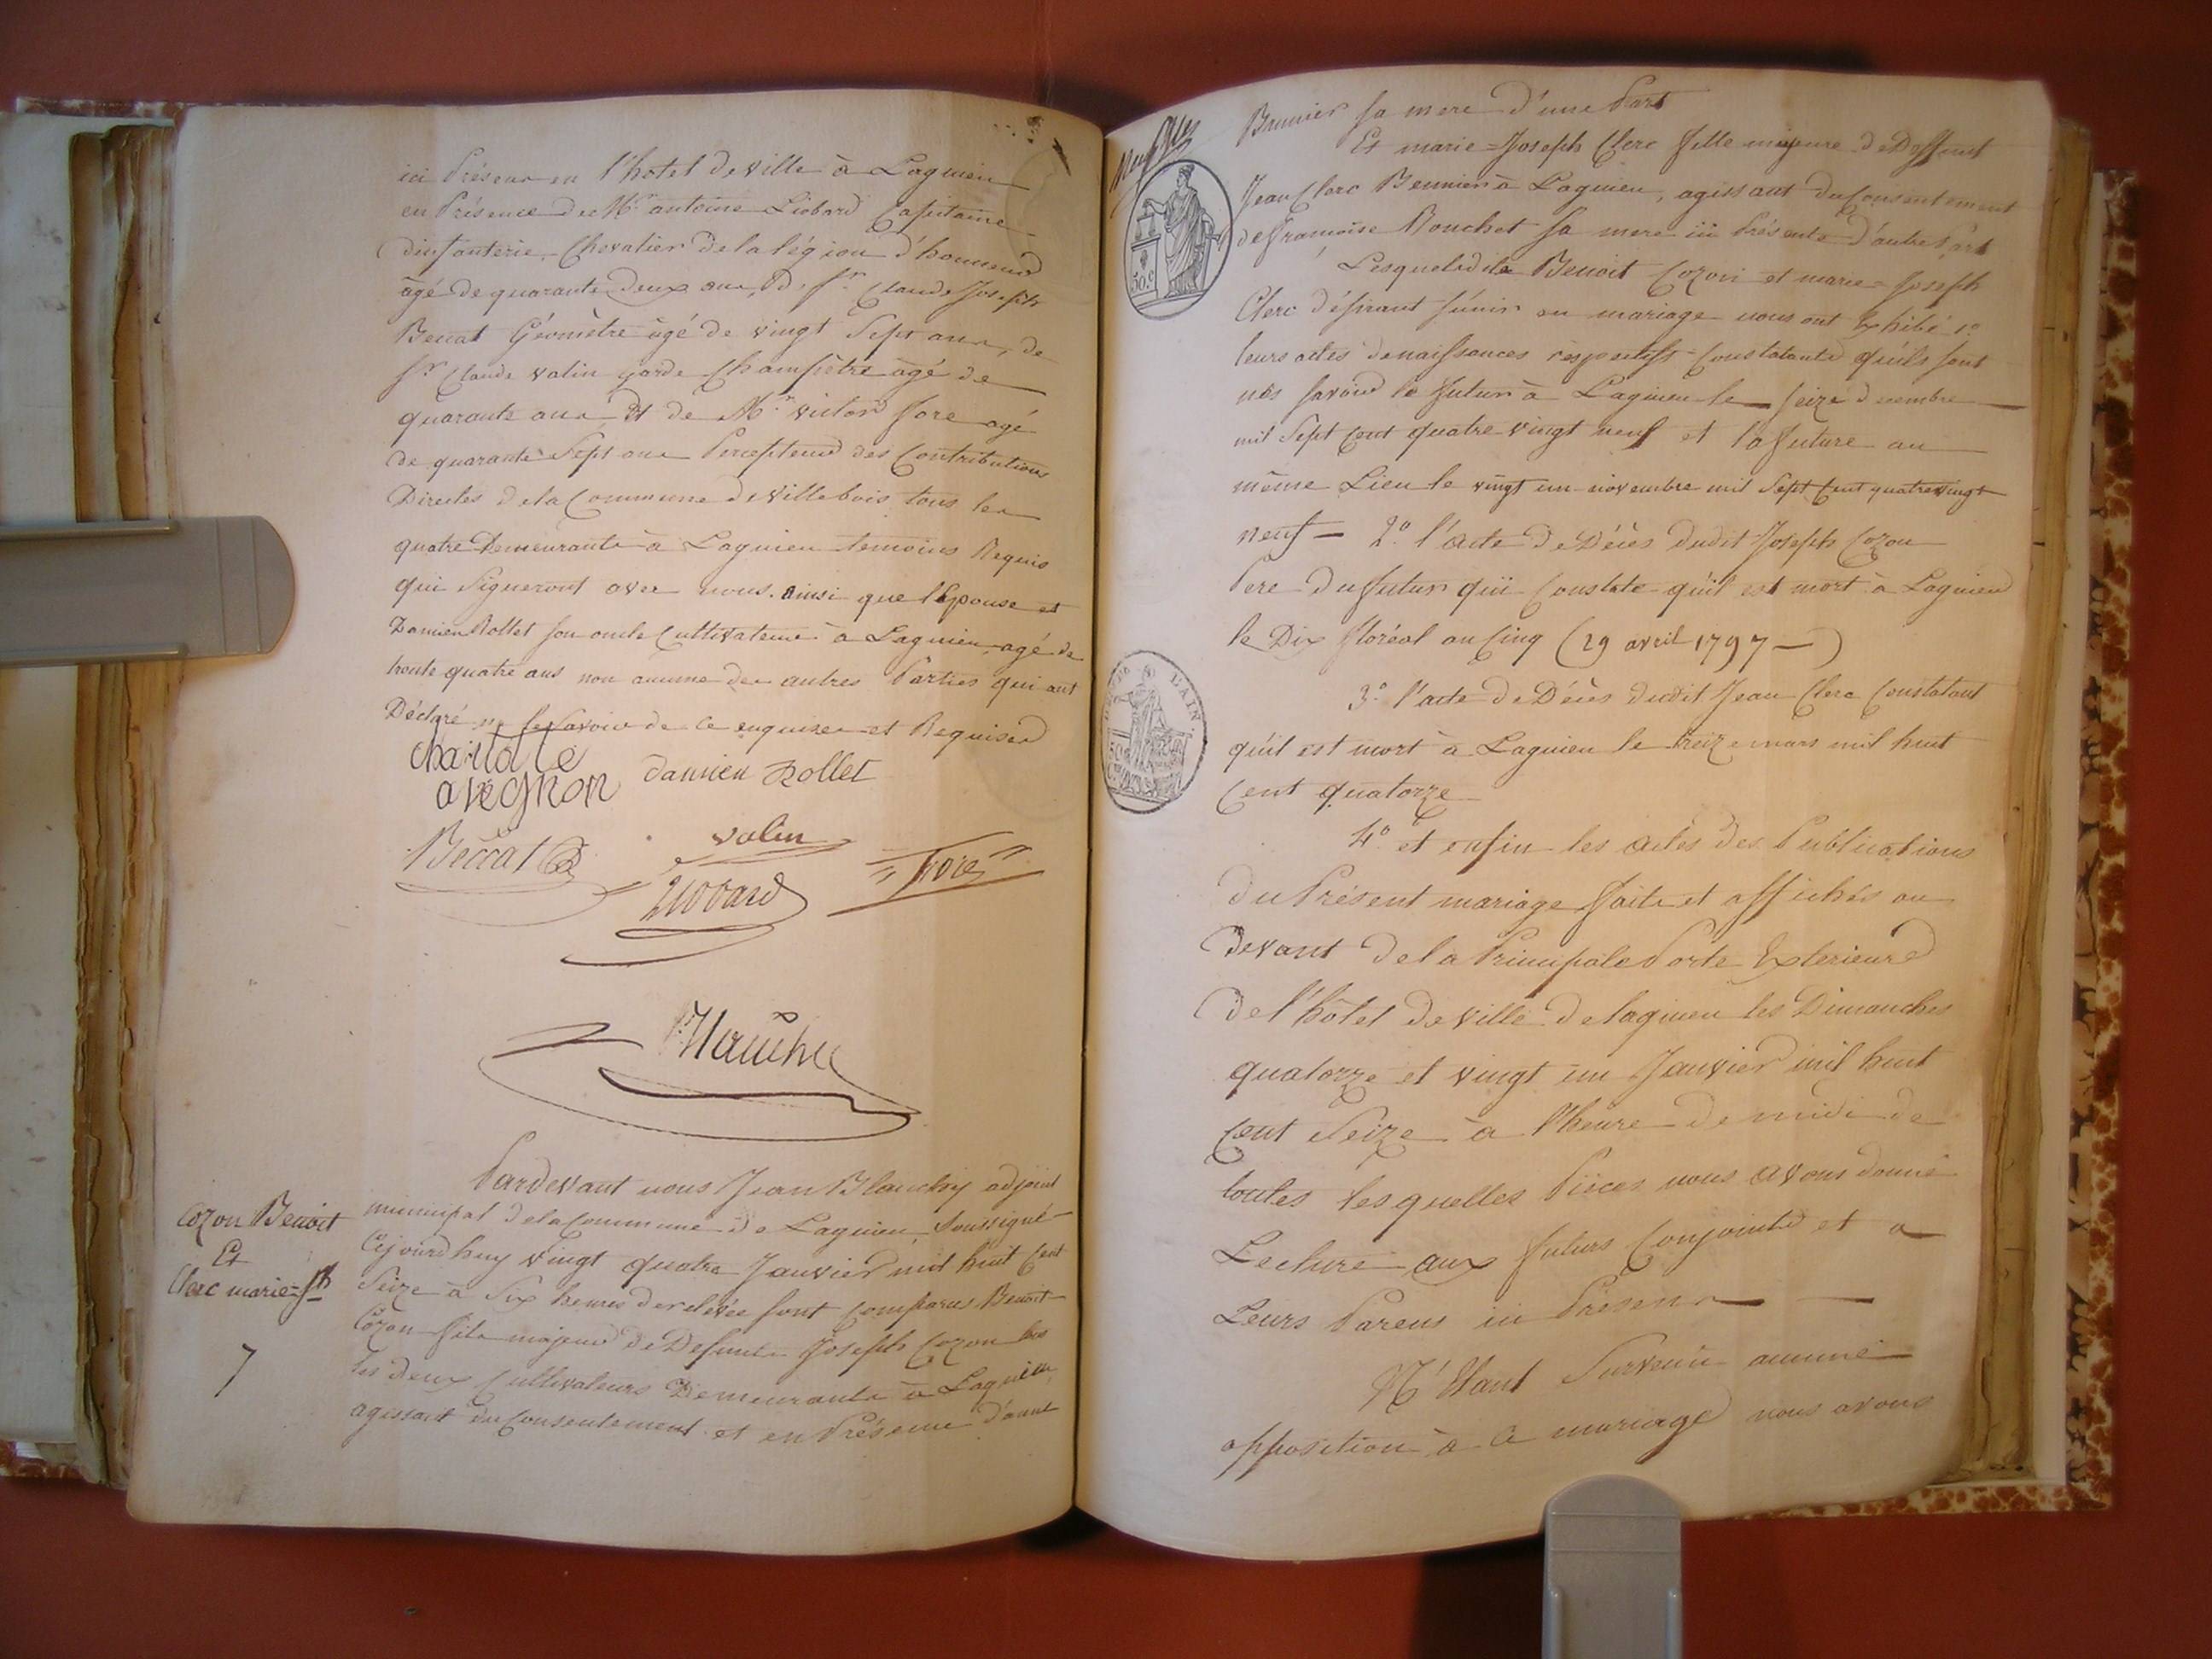 ici Présens en l'hotel de ville à Lagnieu
en Présence de Mr. antoine Liobard Capitaine
dinfanterie, Chevalier de la légion d'honneur
agé de quarante deux ans, d. sr. Claude Joseph
Beccat Géomètre âgé de vingt Sept ans, de
sr. Claude valin garde Champêtre agé de
quarante ans Et de Mr. victor fore agé
de quarante Sept ans Percepteur des Contributions
Directes de la Commune de Villebois tous les
quatre Demeurants à Lagnieu temoins Requis
qui Signeront avec nous. ainsi que l'Epouse et
Damien Rollet son oncle Cultivateur à Lagnieu agé de
trente quatre ans non aucune des autres Parties qui ont
Déclaré ne le Savoir de ce enquises et Requises
avegnon damien Rollet
Beccat valin
Liobard fore
Blanchy
Pardevant nous Jean Blanchy adjoint
municipal de la Commune de Lagnieu, Soussigné
Cejourdhuy vingt quatre Janvier mil huit Cent
Seize à Six heures de relevée sont Comparus Benoit
Cozon fils majeur de Defunt Joseph Cozon
les deux Cultivateurs Demeurants à Lagnieu,
agissant du Consentement et en Présence d'anne
Cozon Benoit
Et
Clerc marie=Jph
7
Brunier sa mere d'une Part
Et marie=Joseph Clerc fille majeure de Deffunt
Jean Clerc à Lagnieu, agissant du Consentement
de françoise Bouchet sa mere ici Présente d'autre Part
Lesquels dits Benoit Cozon et marie=Joseph
Clerc désirant s'unir en mariage nous ont Exhibé 1.o
leurs actes de naissances respectifs Constatants qu'ils sont
nés savoir le futur à Lagnieu le seize decembre
mil Sept Cent quatre vingt neuf et la future au
même Lieu le vingt un novembre mil Sept Cent quatrevingt
neuf — 2.o l'acte de Décès dudit Joseph Cozon
Pere du futur qui Constate qu'il est mort à Lagnieu
le Dix floréal an Cinq (29 avril 1797 —)
3.o l'acte de Décès dudit Jean Clerc Constatant
qu'il est mort à Lagnieu le treize mars mil huit
Cent quatorze
4.o et enfin les actes des Publications
du Présent mariage faite et affichés au
devant de la Principale Porte Exterieure
de l'hôtel de ville de lagnieu les Dimanches
quatorze et vingt un Janvier mil huit
Cent Seize à l'heure de midi de
toutes lesquelles Pièces nous avons donné
Lecture aux futurs Conjoints et a
Leurs Parens ici Présens —
N'Etant Survenu aucune
opposition à ce mariage nous avons
50c
L'AIN.